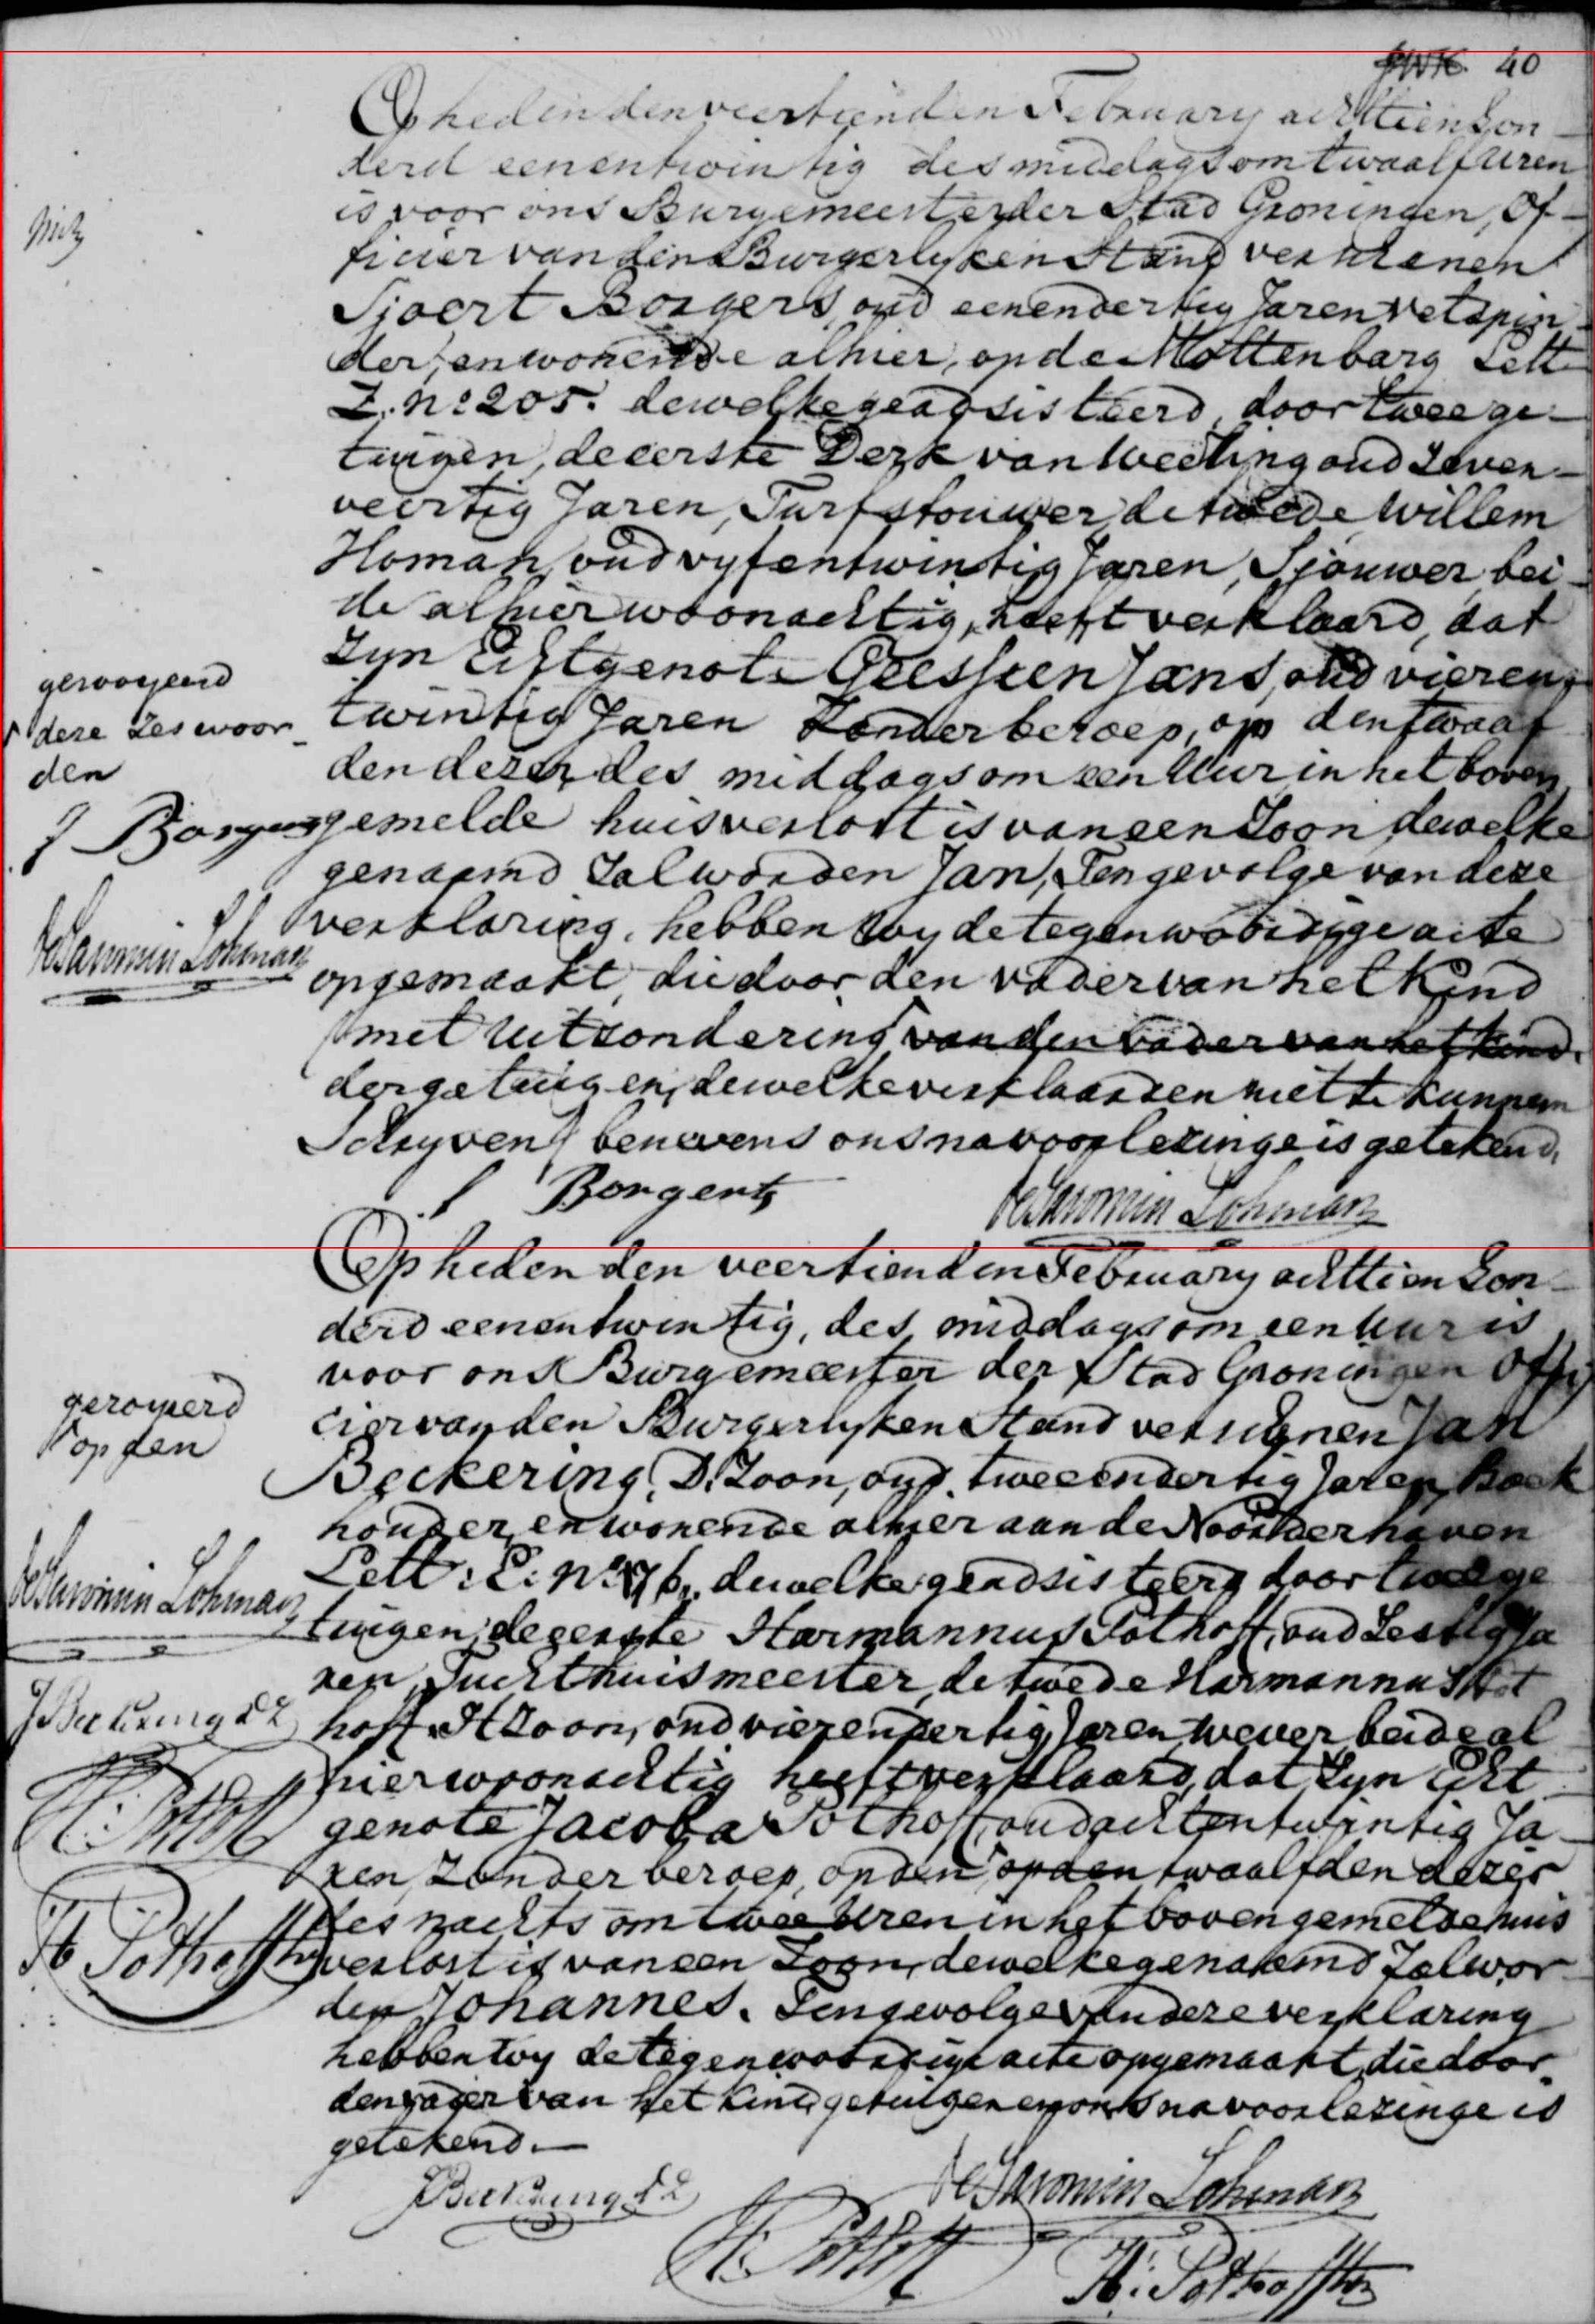 40
Op heden den veertienden February achttien hon-
derd eenentwintig des middags om twaalf uren
is voor ons Burgemeester der Stad Groningen, Of-
ficier van den Burgerlyken Stand verschenen
Sjoert Borgers, oud eenendertig Jaren Vetspin-
der, en wonende alhier, op de Mottenbarg Lett
Z. No 205. dewelke geadsisteerd door twee ge-
tuigen, de eerste Derk van Weeling oud Zeven-
veertig Jaren, Turfstouwer, de twede Willem
Homan, oud vyfentwintig Jaren, Sjouwer, bei-
de alhier woonachtig, heeft verklaard, dat
Zyn Echtgenote Geessien Jans, oud vieren-
twintig Jaren Zonder beroep, op den twaalf
den dezer des middags om een Uur in het boven
gemelde huis verlost is van een Zoon, dewelke
genaamd Zal worden Jan, Ten gevolge van deze
verklaring, hebben Wy de tegenwoordige acte
opgemaakt, die door den vader van het Kind
(met Uitzondering van den vader van het Kind
der getuigen, dewelke verklaarden niet te kunnen
Schryven) benevens ons na voorlezinge is getekend.
geroyeerd
deze Zes woor-
den
J Borgers
de Savornin Lohman
Borgers
de Savornin Lohman
Op heden den veertienden February achttien hon-
derd eenentwintig, des middags om een Uur is
voor ons Burgemeester der Stad Groningen Offi
cier van den Burgerlyken Stand verschenen Jan
Beckering, D. Zoon, oud tweeendertig Jaren, Boek
houder, en wonende alhier aan de Noorderhaven
Lett: E: No 76, dewelke geadsisteerd door twee ge
tuigen, de eerste Harmannus Pothoff, oud Zestig Ja
ren, Tuchthuismeester, de twede Harmannus Pot
hoff H Zoon, oud vierendertig Jaren, Wever beide al
hier woonachtig heeft verklaard, dat Zyn Echt
genote Jacoba Pothoff, oud achtentwintig Ja-
ren, Zonder beroep, op den op den twaalfden dezer
des nachts om twee Uren in het bovengemelde huis
verlost is van een Zoon, dewelke genaamd Zal wor-
den Johannes. Tengevolge van deze verklaring
hebben Wy de tegenwoordige acte opgemaakt, die door
den vader van het Kind, getuigen en ons na voorlezinge is
getekend.
geroyeerd
op den
de Savornin Lohman
J Beckering DZ
H: Pothoff
H Pothoff Hz
J Beckering DZ
de Savornin Lohman
H: Pothoff
H: Pothoff Hz